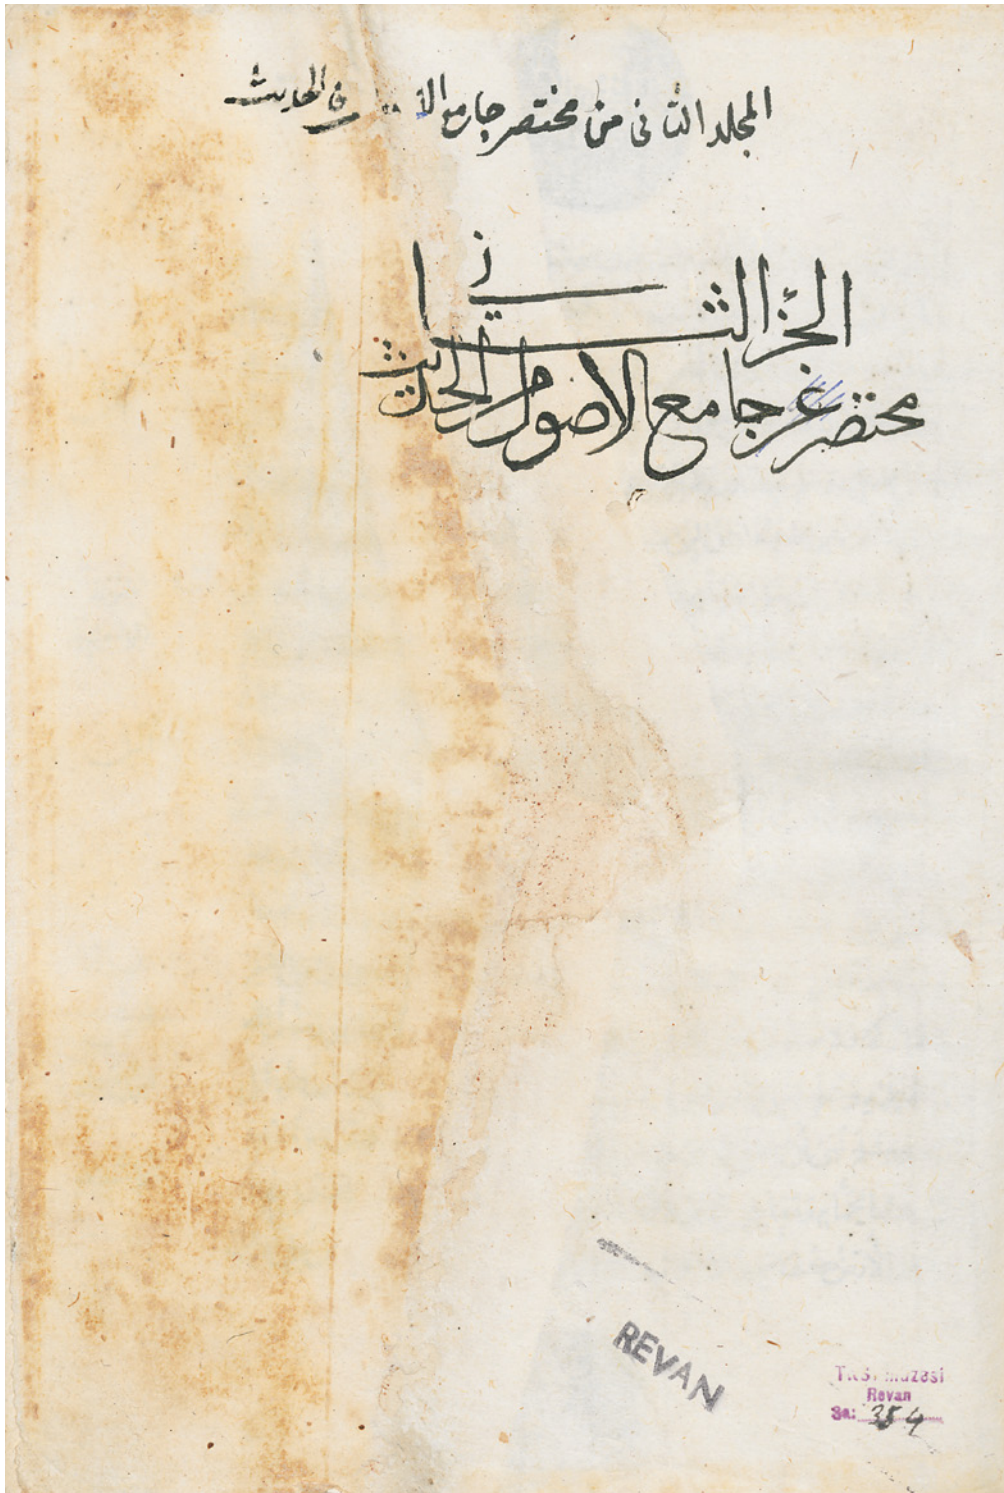 المجلد الثانى من مختصر جامع فى الحديث
الجزء الثانى
مختصر جامع الاصول الحديث
REVAN
müzesi
Revan
354